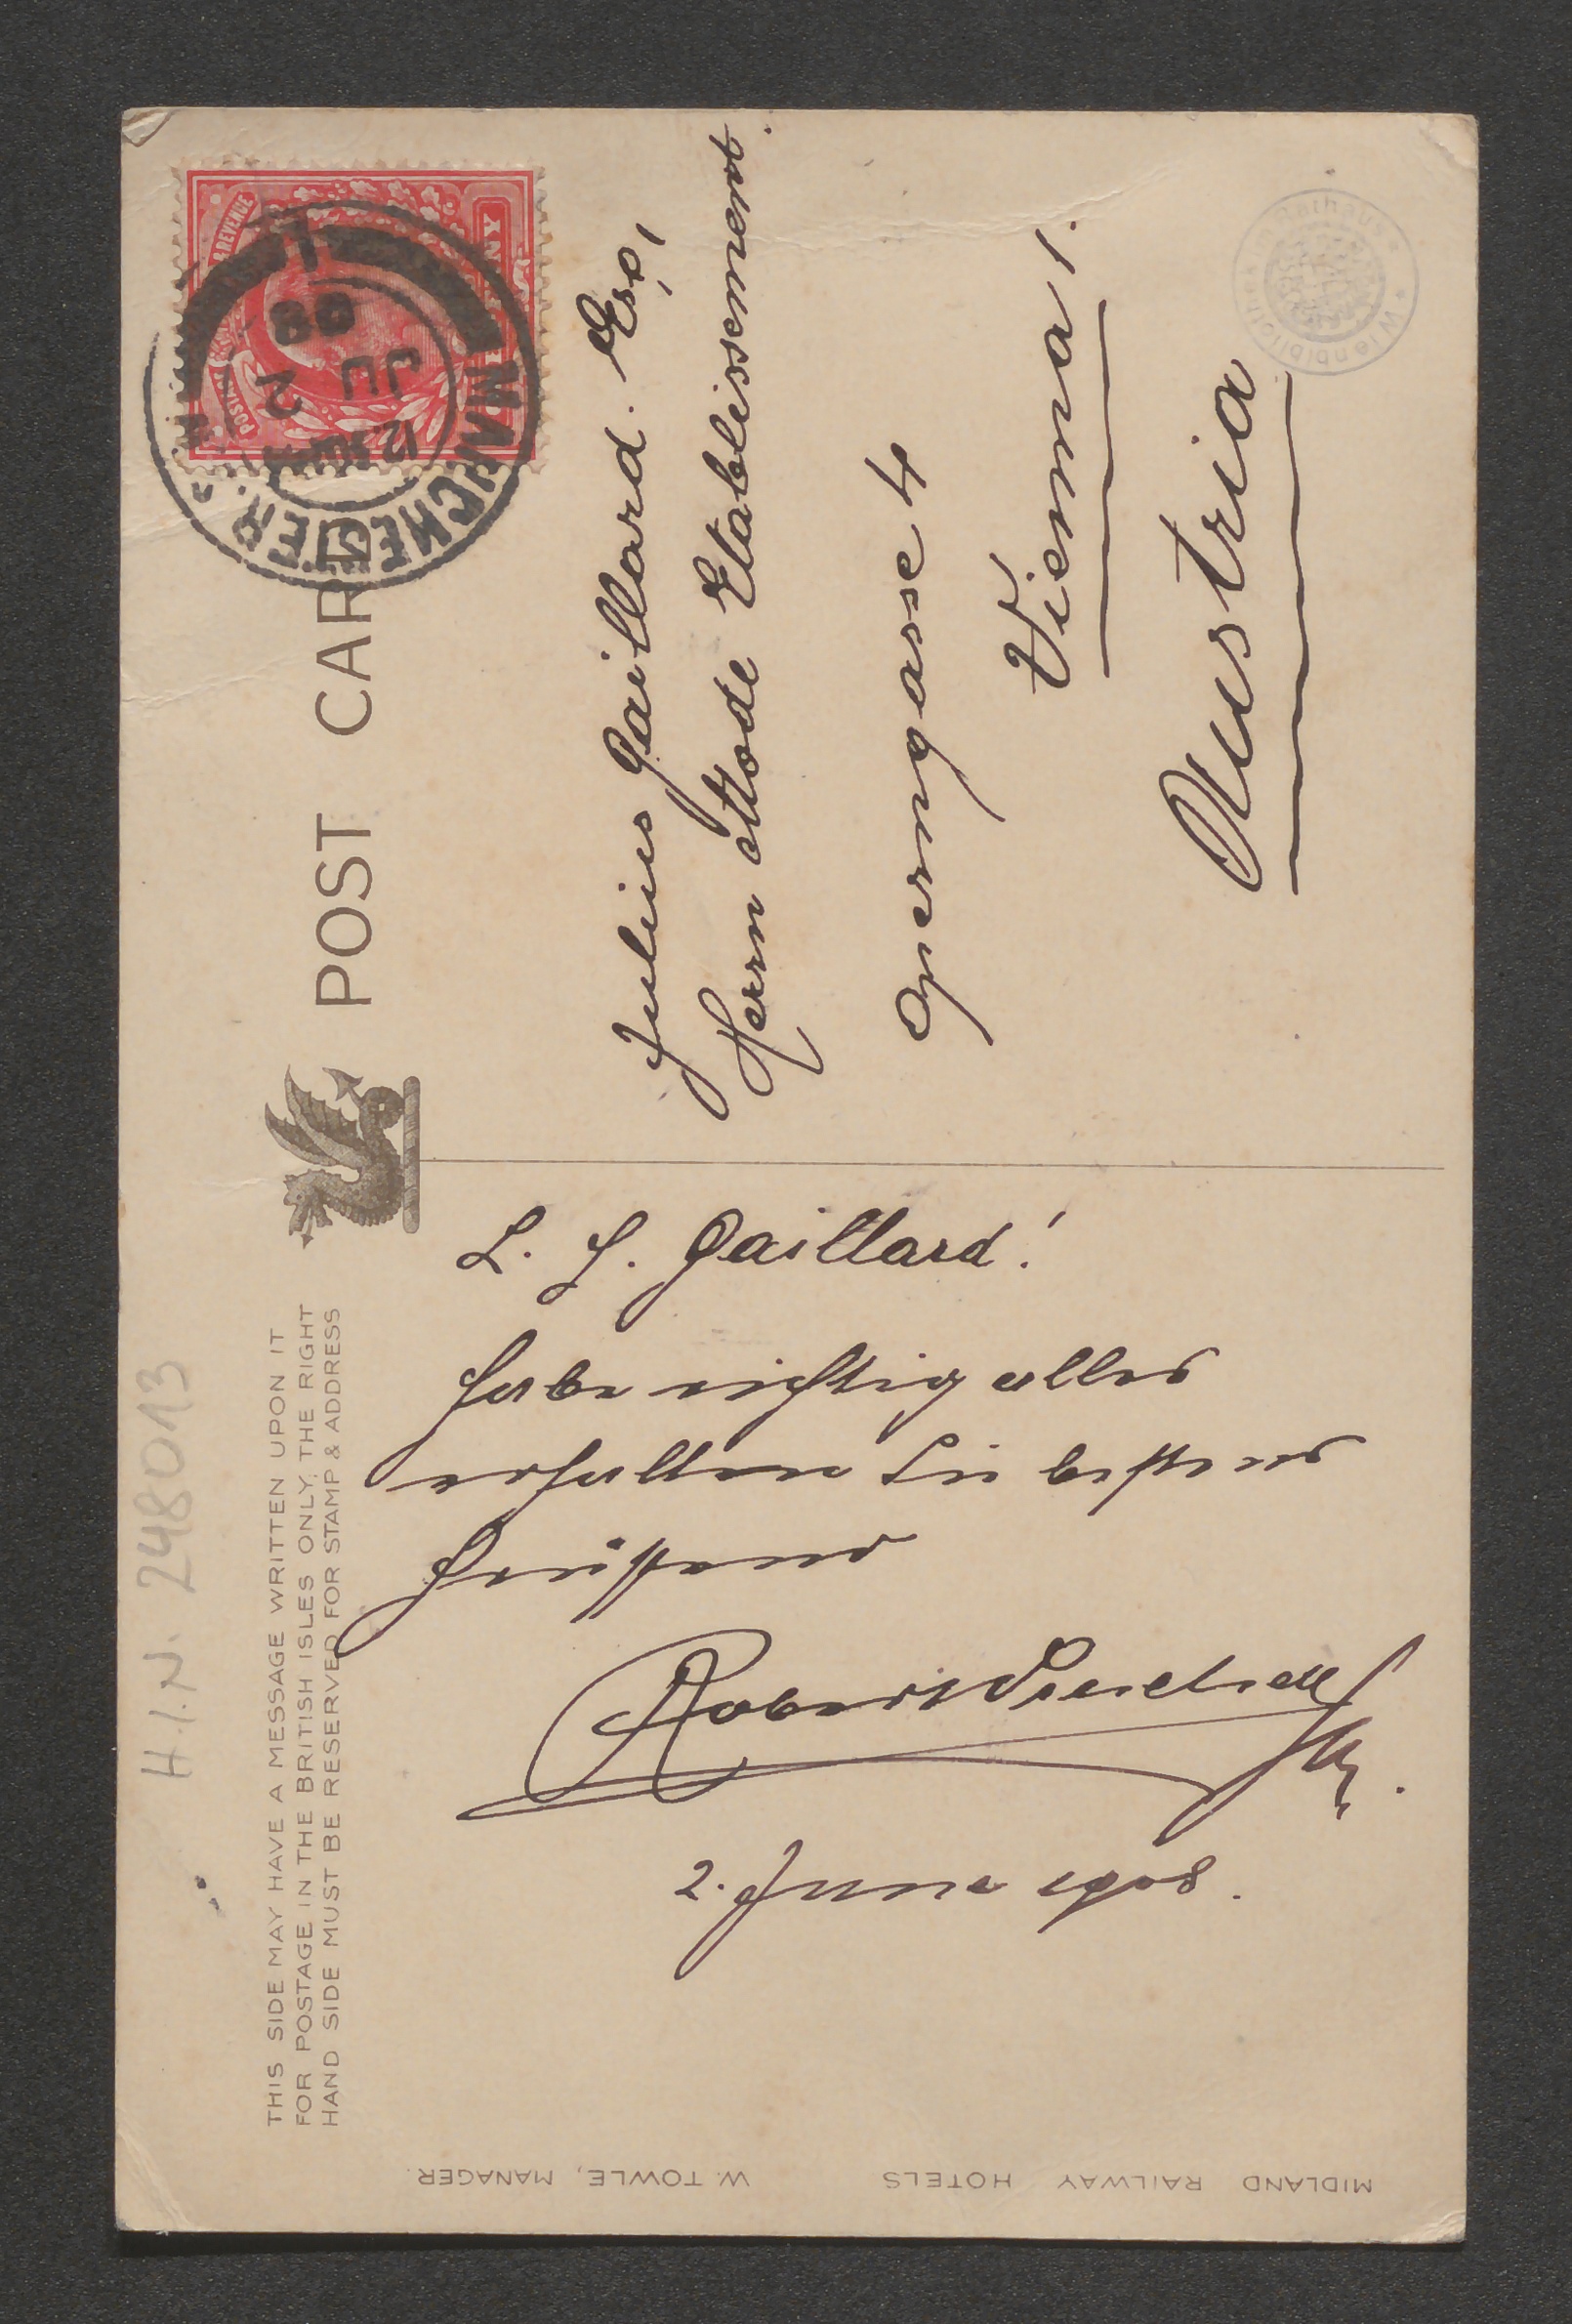 POST CARD
THIS SIDE MAY HAVE A MESSAGE WRITTEN UPON IT
FOR POSTAGE IN THE BRITISH ISLES ONLY. THE RIGHT
HAND SIDE MUST BE RESERVED FOR STAMP & ADDRESS
H.I.N. 248013
MANCHESTER
12
JU 2
08
Julius Gaillard. Esq,
Herrn Mode Etablissement.
Operngasse 4
Vienna 1.
Austria
L. H. Gaillard!
habe richtig alles
erhalten Sie bestens
Grüssend
Robert
2. June 1908.
MIDLAND RAILWAY HOTELS
W. TOWLE, MANAGER.
Wienbibliothek im Rathaus